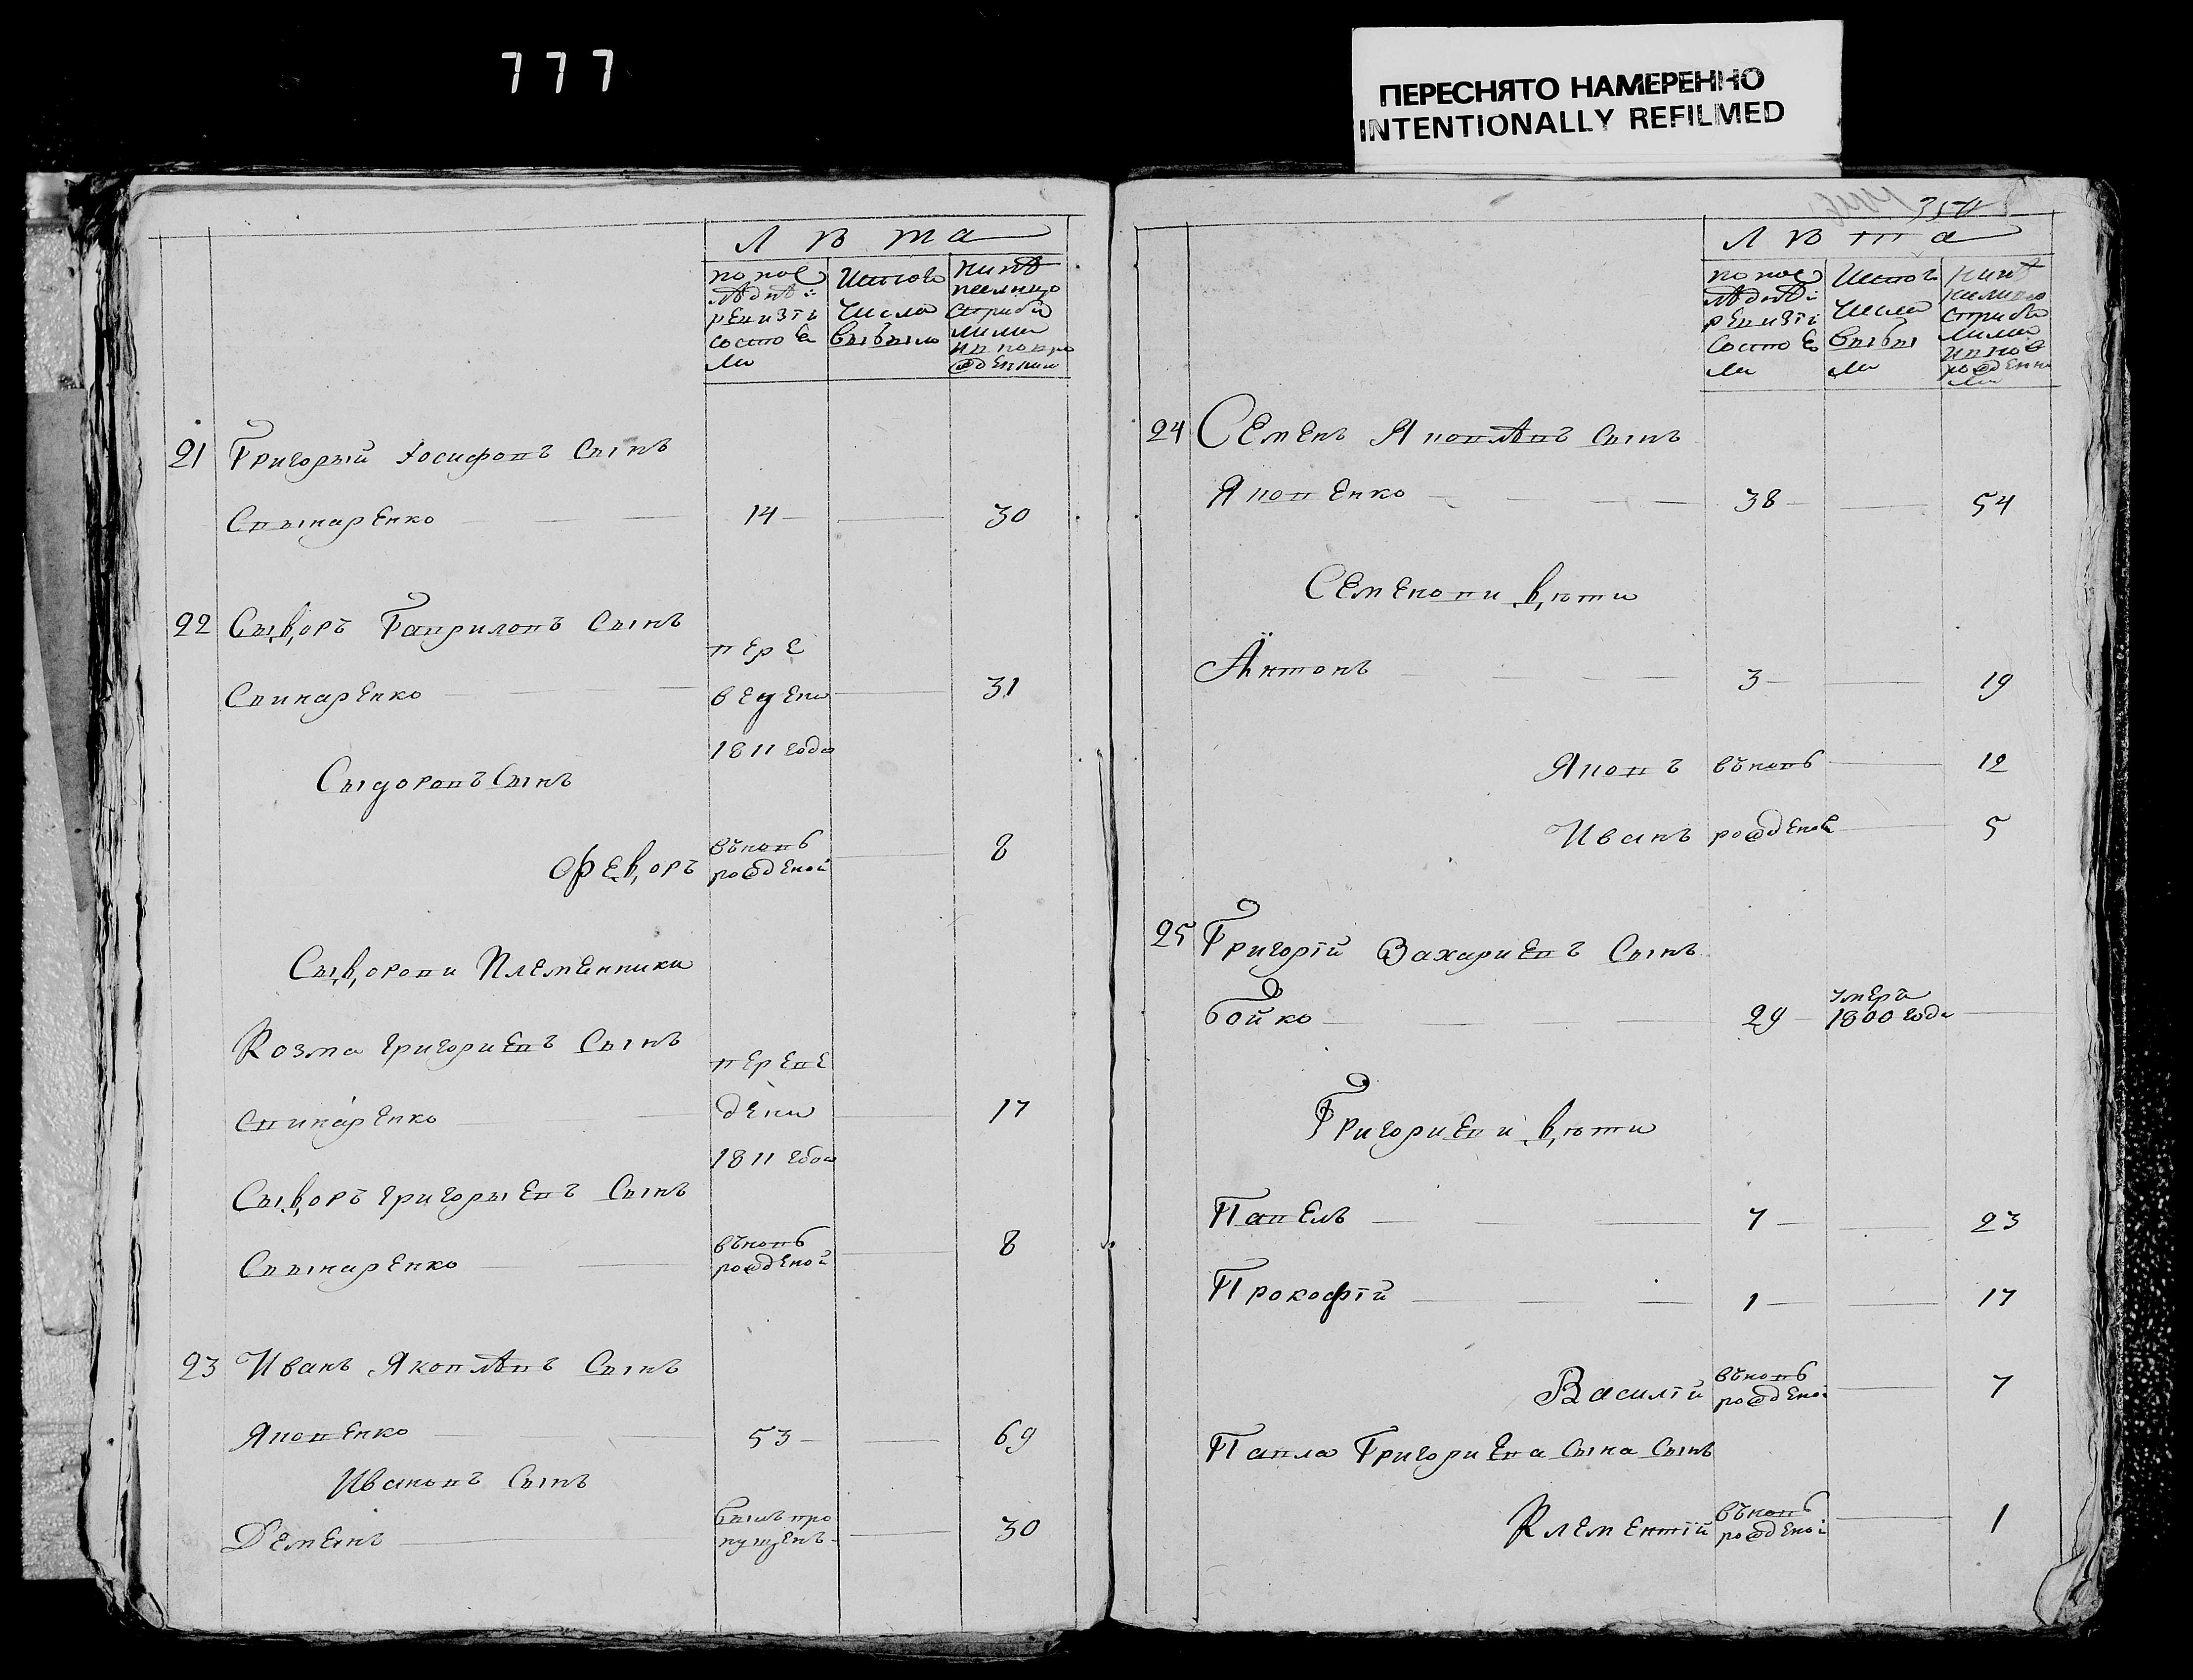 777
ПЕРЕСНЯТО НАМЕРЕННО
INTENTIONALLY REFILMED
Лѣта
по пос
лѣднѣ:
ревизіи
состоя
ли
Исъ того
числа
выбыло
нинѣ
налицо
съ прибы
лыми
и новоро
жденными
21 Григорый Іосифовъ Сынъ
Свынаренко 14 30
22 Сыдоръ Гавриловъ Сынъ
Свинаренко 31
пере
ведены
1811 года
Сыдоровъ Сынъ
Федоръ 8
въновь
рожденой
Сыдорови Племенники
Козма Григориевъ Сынъ
Свинаренко 17
переве
дены
1811 года
Сыдоръ Григорыевъ Сынъ
Свынаренко 8
въновь
рожденой
23 Иванъ Яковлѣвъ Сынъ
Яковенко 53 69
Ивановъ Сынъ
Деменъ 30
былъ про
пущенъ
Лѣта
по пос
лѣднѣ:
ревизіи
состоя
ли
Исъ того
числа
выбы
ли
нинѣ
налицо
съ прибы
лыми
и ново
рожденны
ми
24 Семенъ Яковлѣвъ Сынъ
Яковенко 38 54
Семенови дѣти
Антонъ 3 19
Яковъ въновь 12
Иванъ рожденой 5
25 Григорій Захариевъ Сынъ
Бойко 29
умеръ
1800 года
Григориеви дѣти
Павелъ 7 23
Прокофій 1 17
Василій 7
въновь
рожденой
Павла Григориева Сына Сынъ
Клементій 1
въновь
рожденой